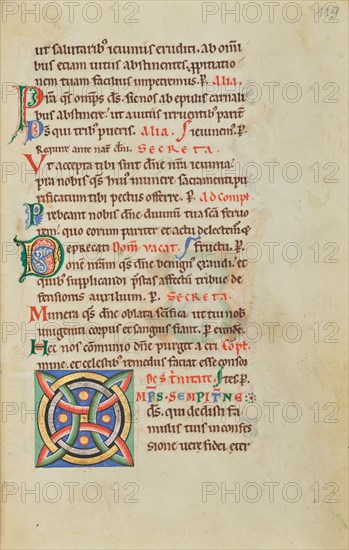 119
ut salutarib; ieiuniis eruditi. ab omi
bus etiam uitiis abstinentes. ppitatio
nem tuam facilius impetremus. P. Alia.
Pm qs omps ds. sic nos ab epulis carnali
bus abstinere. ut a uitiis irruentib; parit
Ds qui trib; pueris. Alia. ieiunem. P.
Require ante nat dni. SECRETA.
Vt accepta tibi sint dne nra ieiunia.
pta nobis qs hui; munere sacramenti pu
rificatum tibi pectus offerre. P. Ad compt.
Prebeant nobis dne diuinu tua sca feruo
re. quo eorum pariter et actu delectem
Deprecati Dom uacat. fructu. P.
onē nram qs dne benignus exaudi. et
quib; supplicandi pstas affectu tribue de
fensionis auxilium. P. SECRETA.
Munera qs dne oblata scifica ut tui nob
unigeniti corpus et sanguis fiant. P eunde.
Hec nos communio dne purget a cri
mine. et celestib; remediis faciat esse consor
De s trinitate.
MPS. SEMPITNE
ds. qui dedisti fa
mulis tuis in confes
sione uere fidei eter